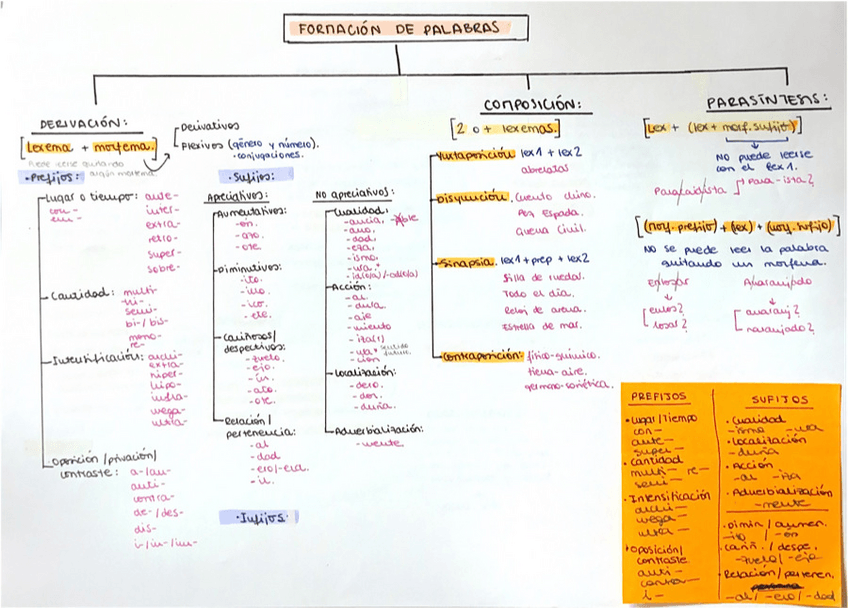 FORMACIÓN DE PALABRAS
DERIVACIÓN:
[Lexema + morfema.]
Derivativos
Flexivos (género y número).
· conjugaciones.
Puede leerse quitando
algún morfema.
· Prefijos:
Lugar o tiempo: ante-
con- inter-
extra-
retro-
super-
sobre-
Cantidad: multi-
semi-
bi-/bis-
mono-
re-
Intensificación: archi-
extra-
hiper-
hipo-
infra-
mega-
ultra-
Oposición/privación/
contraste: a-/an-
anti-
contra-
de-/des-
dis-
i-/in-/im-
· Sufijos:
Apreciativos:
Aumentativos:
-ón.
-azo.
-ote.
Diminutivos:
-ito.
-illo.
-ico.
-ete.
Cariñosos/
despectivos:
-zuelo.
-ejo.
-ín.
-aco.
-ote.
Relación/
pertenencia:
-al
-dad
-ero/-era.
-il.
· Infijos:
No apreciativos:
Cualidad:
-ancia.
-ano.
-dad.
-eza.
-ismo.
-ura.*
Acción:
-al.
-dura.
-aje
-miento
-iza(r)
-ción
Localización:
-dero.
-dor.
-duría.
Adverbialización:
-mente.
COMPOSICIÓN:
[2 o + lexemas.]
Yuxtaposición lex1 + lex2
abrelatas
Disyunción. Cuento chino.
Pez Espada.
Guerra Civil.
Sinapsia. lex1 + prep + lex2
Silla de ruedas.
Todo el día.
Reloj de arena.
Estrella de mar.
Contraposición: físico-químico.
tierra-aire.
germano-soviética.
PARASÍNTESIS:
[Lex + (lex + morf. sufijo)]
NO puede leerse
con el lex1.
Para/caid/ista Para-ista?
[(morf. prefijo) + (lex) + (morf. sufijo)]
NO se puede leer la palabra
quitando un morfema.
Anaranjado
anaranj?
naranjado?
PREFIJOS
· Lugar/Tiempo
con-
ante-
super-
· Cantidad
multi- re-
semi-
· Intensificación
archi-
mega-
ultra-
· Oposición/
contraste
anti-
contra-
i-
SUFIJOS
· Cualidad
-ismo -ura
· Localización
-duría
· Acción
-al -iza
· Adverbialización
-mente
· Dimin/aumen.
-ito / -on
· Cariñ. / despe.
-zuelo/-ejo
· Relación/perten.
-al/-ero/-dad